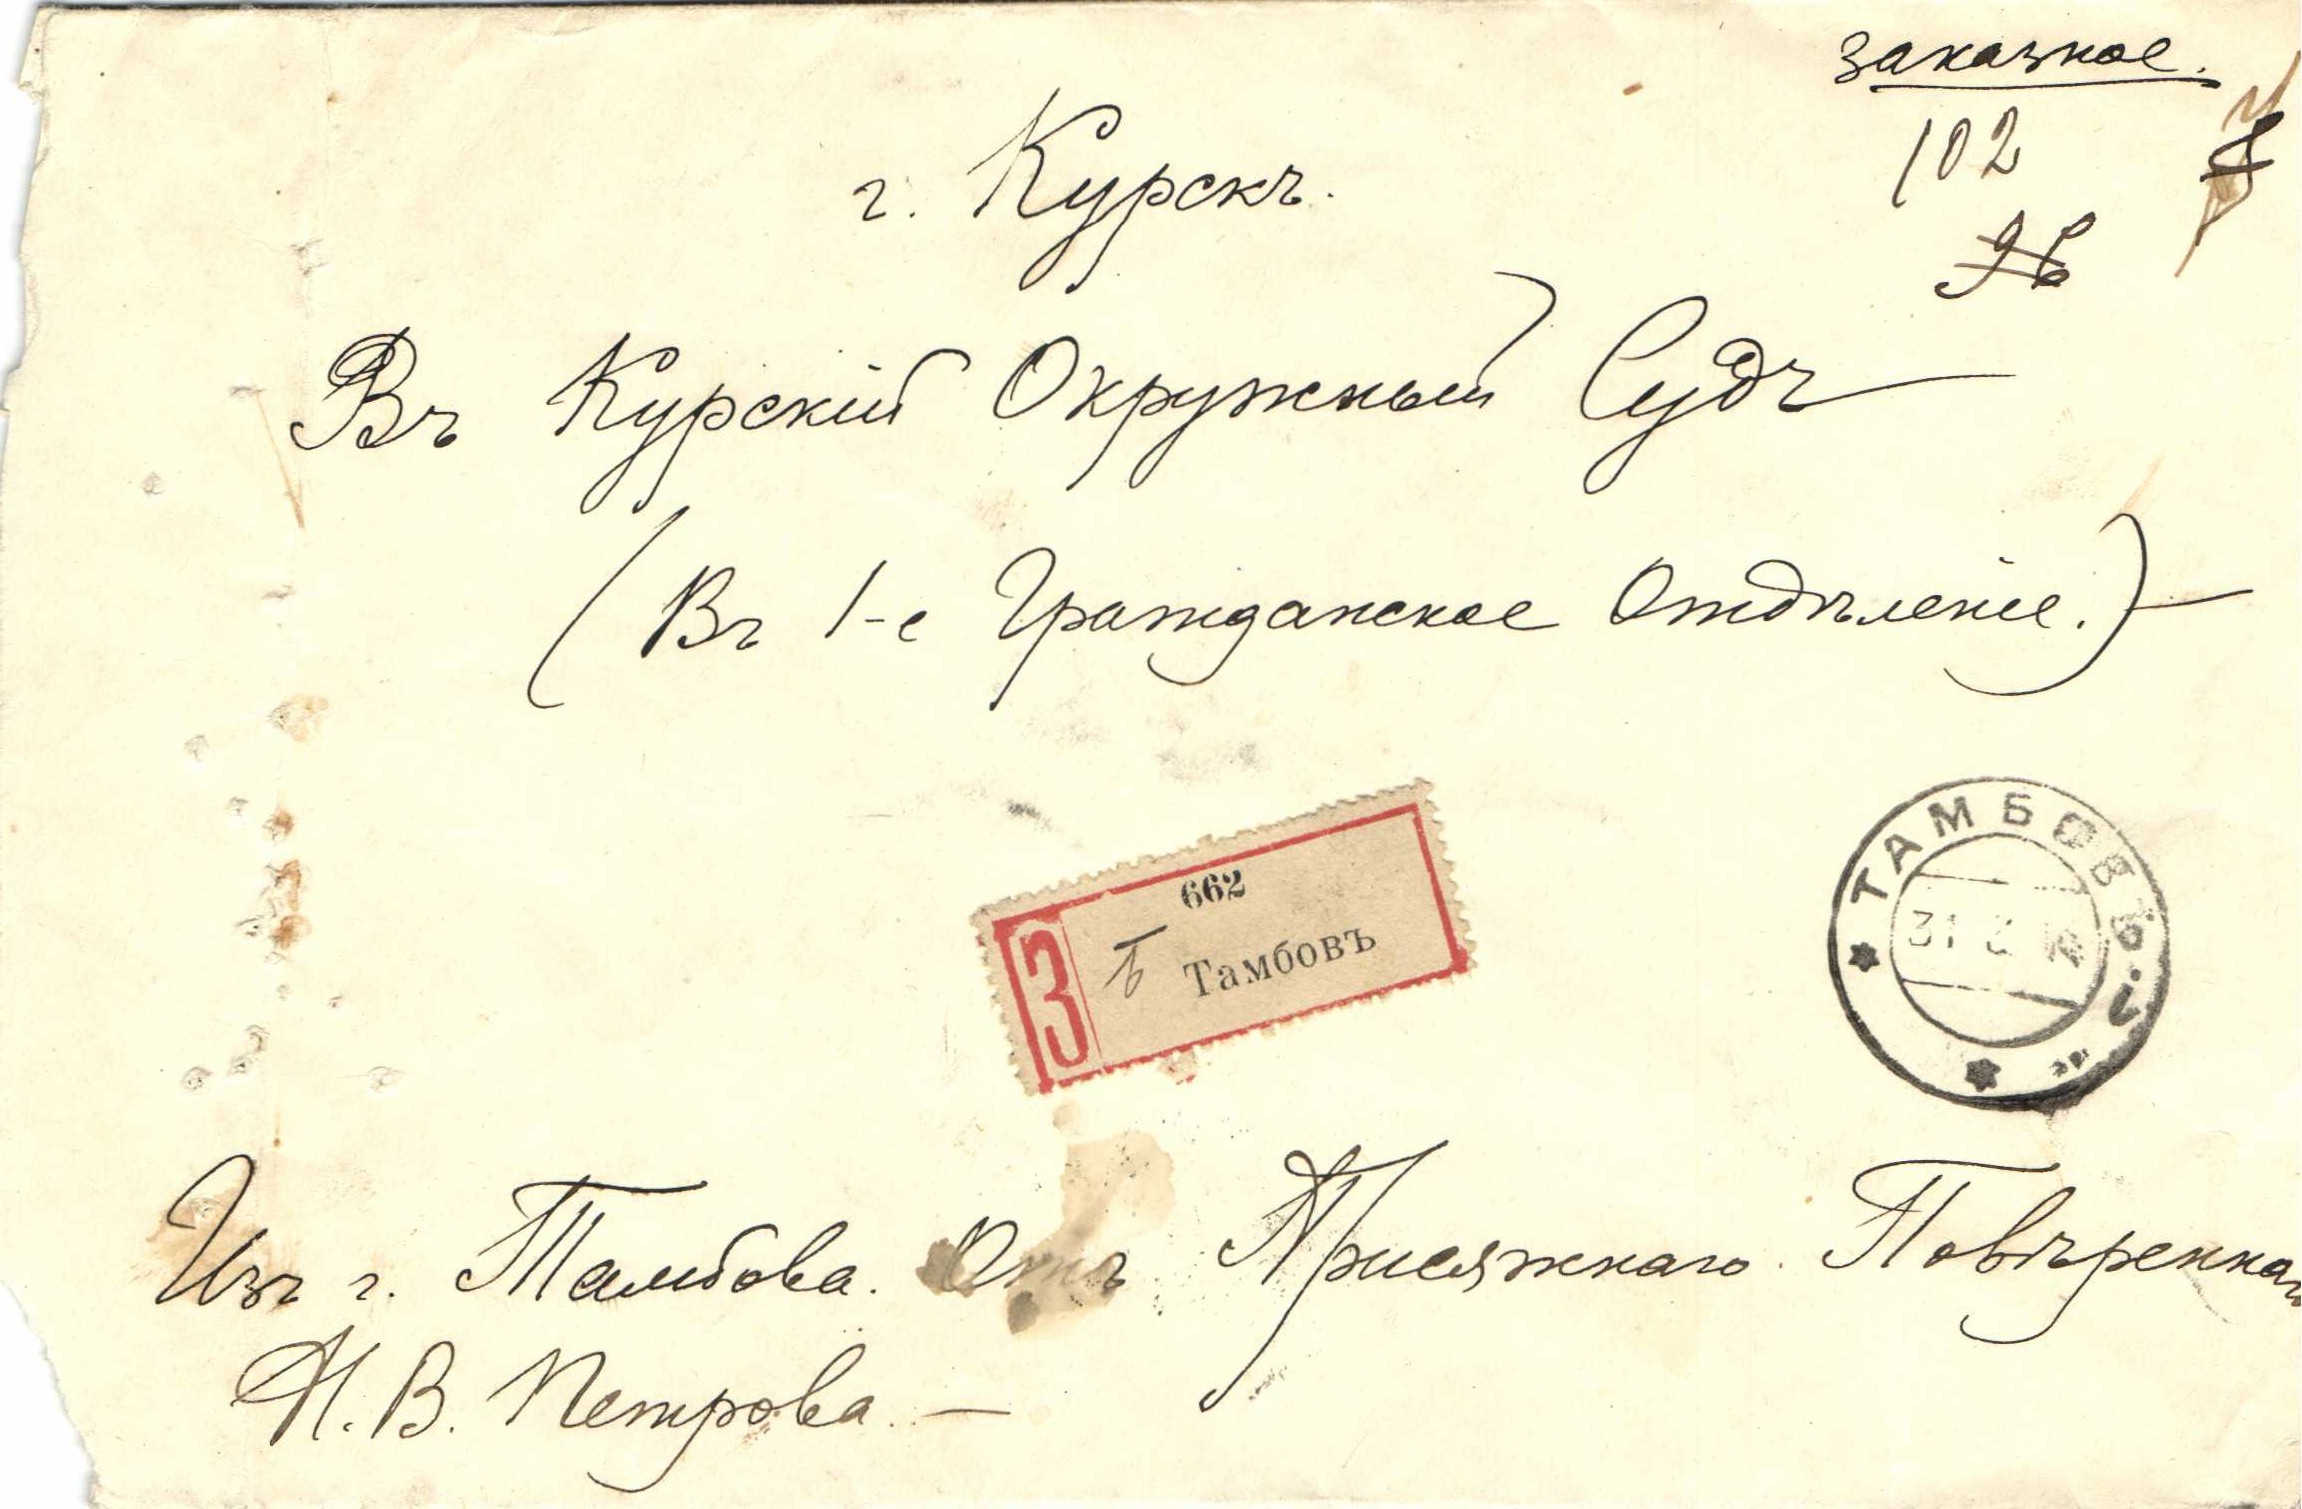 заказное.
102
г. Курскъ.
Въ Курскій Окружный Судъ
(Въ 1-е Гражданское Отдѣленіе.)
662
З Тамбовъ
ТАМБОВЪ
31
Изъ г. Тамбова. Отъ Присяжнаго Повѣреннаго
Н. В. Петрова.